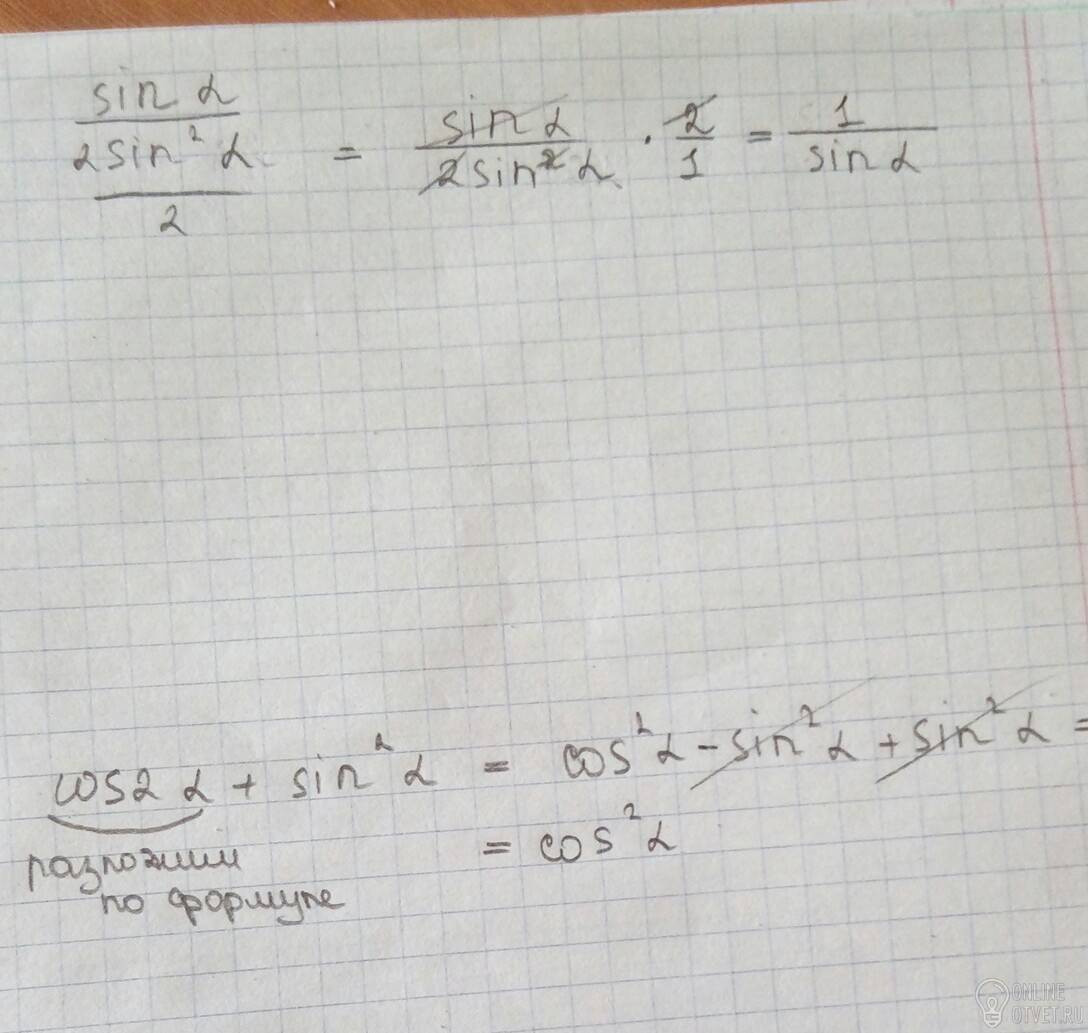 sin α / (2sin² α / 2) = sin α / 2sin² α · 2/1 = 1 / sin α
cos2α + sin² α = cos² α - sin² α + sin² α =
= cos² α
разложим
по формуле
ONLINE
OTVET.RU